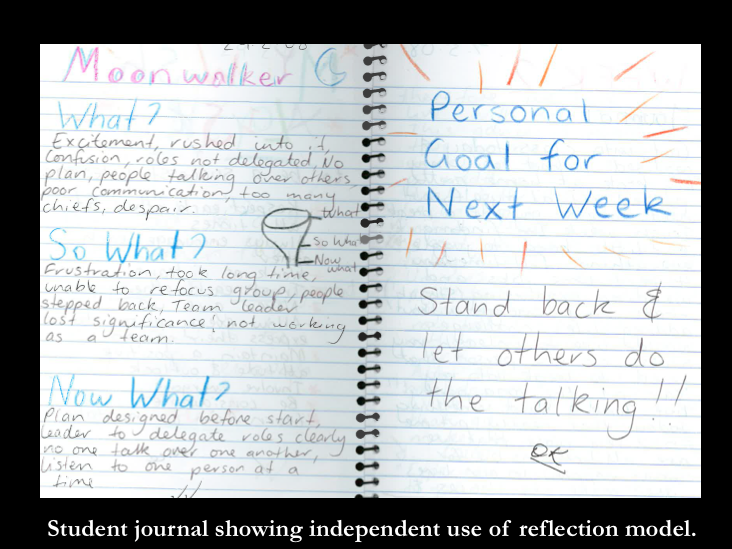 Moonwalker
What?
Excitement, rushed into it,
Confusion, roles not delegated, No
plan, people talking over others
poor communication, too many
chiefs, despair.
What
So What
Now
what
So What?
Frustration, took long time,
unable to refocus group, people
stepped back, Team leader
lost significance, not working
as a team.
Now What?
Plan designed before start,
Leader to delegate roles clearly
no one talk over one another,
Listen to one person at a
time
Personal
Goal for
Next Week
Stand back &
let others do
the talking!!
Student journal showing independent use of reflection model.